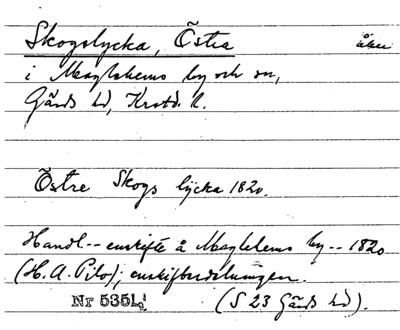 Skogslycka, Östra åker
i Maglehems by och sn,
Gärds hd, Krstd. l.
Östre Skogs lycka 1820.
Handl.-- enskifte å Maglehems by -- 1820
(H. A. Pilo); enskiftesdelningen.
Nr 5351, (S 23 Gärds hd).